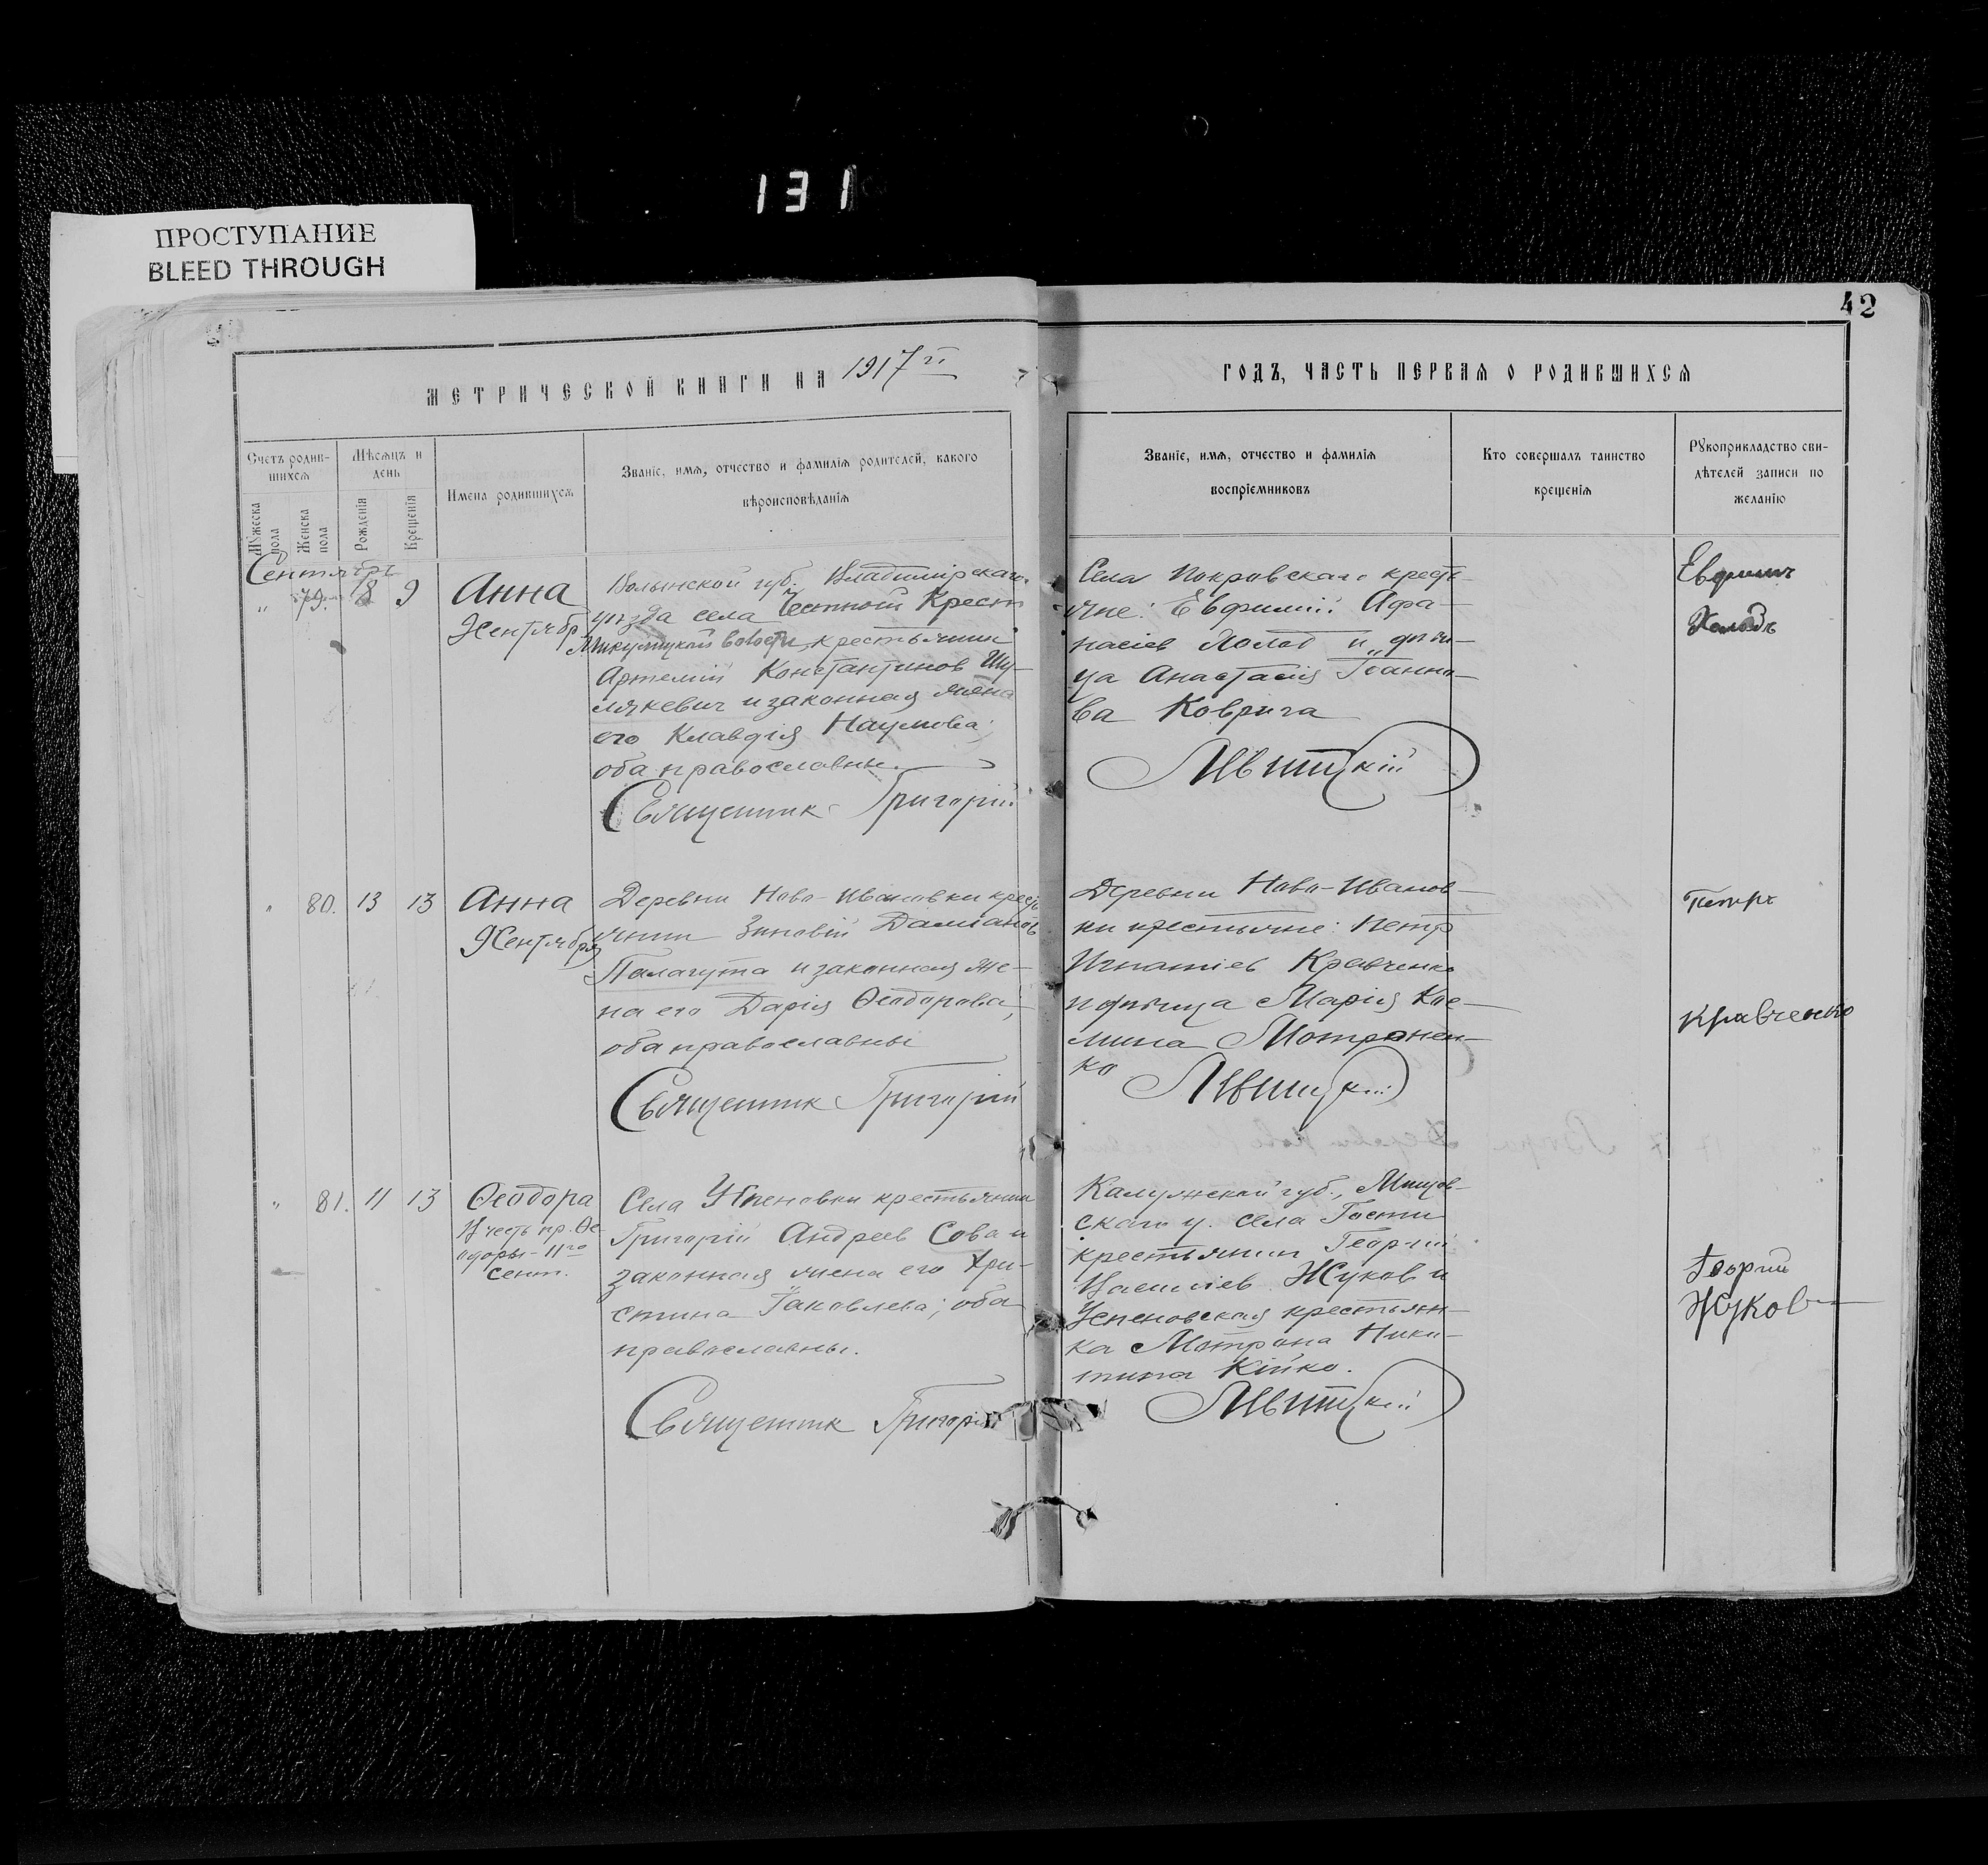 131
ПРОСТУПАНИЕ
BLEED THROUGH
42
МЕТРИЧЕСКОЙ КНИГИ НА 1917 ГОДЪ, ЧАСТЬ ПЕРВАЯ О РОДИВШИХСЯ
Счетъ родив-
шихся
Мужеска пола
Женска пола
Мѣсяцъ и
день
Рожденія
Крещенія
Имена родившихся
Званіе, имя, отчество и фамилія родителей, какого
вѣроисповѣданія
Званіе, имя, отчество и фамилія
воспріемниковъ
Кто совершалъ таинство
крещенія
Рукоприкладство сви-
дѣтелей записи по
желанію
Сентябрь
" 79. 8 9
Анна
9 Сентябр
Волынской губ. Владимірскаго
уѣзда села Честной Крест
волости, крестьянин
Артемій Константинов Шу-
лякевич и законная жена
его Клавдія Наумова;
оба православны.
Священник Григорій
Села Покровскаго кресть-
яне: Евфимій Афа-
насіев Холод и дѣви-
ца Анастасія Іоанно-
ва Коврига
Лѣвицкій
Евфимий
Холодъ
" 80. 13 13
Анна
9 Сентября
Деревни Ново-Ивановки кресть
янин Зиновій Даміанов
Палагута и законная же-
на его Дарія Ѳеодорова,
оба православны
Священник Григорій
Деревни Ново-Иванов-
ки крестьяне: Петр
Игнатіев Кравченко
и дѣвица Марія Кос-
мина Мотронен-
ко Лѣвицкій
Петръ
Кравченко
" 81. 11 13
Ѳеодора
В честь пр. Ѳе-
одоры - 11го
сент.
Села Успеновки крестьянин
Григорій Андреев Сова и
законная жена его Хри-
стина Іаковлева; оба
православны.
Священник Григорій
Калужской губ., Мещов-
скаго у. села Гости
крестьянин Георгій
Василіев Жуков и
Успеновская крестьян-
ка Мотрона Ники-
тина Кійко.
Лѣвицкій
Георгий
Жуков